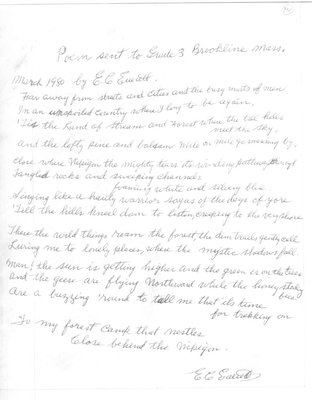 Poem sent to Grade 3 Brookline Mass.
March 1980 by E C Everett.
Far away from streets and cities and the busy units of men
In an unspoiled country where I long to be again.
'Tis the Land of Stream and Forest where the tree hides
meet the sky.
And the lofty pine and balsam, mile on mile go running by.
close where Nipigon the mighty tears its winding pathway through
Tangled rocks and sweeping channels
foaming white and silvery blue
Singing like a hardy warrior sagas of the days of yore
'Till the hills kneel down to listen, creeping to the very shore
There the wild things roam the forest, the dim trails gently call
Luring me to lonely places, where the mystic shadows fall.
Man! the sun is getting higher and the green is on the trees
And the geese are flying Northward while the honey
bees
are a buzzing 'round to tell me that its time
for trekking on
To my forest Camp that nestles
Close behind the Nipigon.
E C Everett